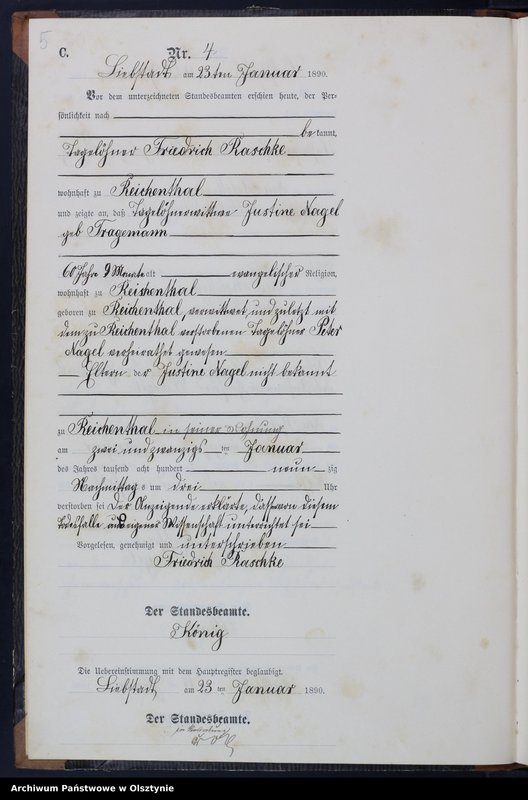 5
C.
Nr. 4
Liebstadt am 23ten Januar 1890.
Vor dem unterzeichneten Standesbeamten erschien heute, der Per-
sönlichkeit nach
bekannt,
Tagelöhner Friedrich Raschke
wohnhaft zu Reichenthal
und zeigte an, daß Tagelöhnerwittwe Justine Nagel
geb Tragemann
60 Jahre 9 Monate alt evangelischer Religion,
wohnhaft zu Reichenthal
geboren zu Reichenthal, verwittwet, und zuletzt mit
dem zu Reichenthal verstorbenen Tagelöhner Peter
Nagel verheirathet gewesen
Eltern der Justine Nagel nicht bekannt
zu Reichenthal in seiner Wohnung
am zwei und zwanzigsten Januar
des Jahres tausend acht hundert neunzig
Nachmittags um drei Uhr
verstorben sei Der Anzeigende erklärte, daß von diesem
Todesfalle aus eigener Wissenschaft unterrichtet sei
Vorgelesen, genehmigt und unterschrieben
Friedrich Raschke
Der Standesbeamte.
König
Die Uebereinstimmung mit dem Hauptregister beglaubigt.
Liebstadt am 23ten Januar 1890.
Der Standesbeamte.
Archiwum Państwowe w Olsztynie